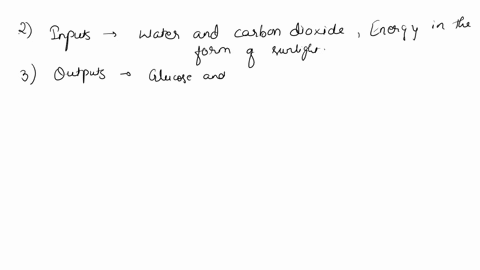 2) Inputs → Water and carbon dioxide, Energy in the
form of sunlight.
3) Outputs → Glucose and